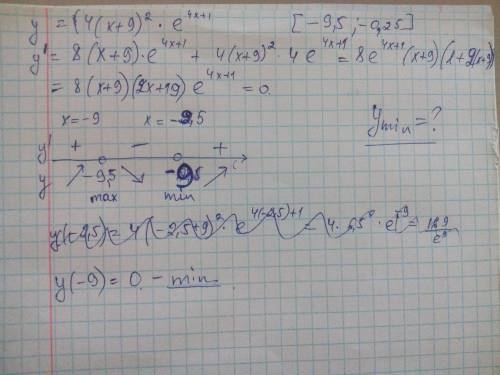 y = (4(x+9)² · e^{4x+1} [-9,5; -0,25]
y' = 8(x+9)·e^{4x+1} + 4(x+9)²·4e^{4x+1} = 8e^{4x+1}(x+9)(1+2(x+9))
= 8(x+9)(2x+19)e^{4x+1} = 0
x=-9 x=-9,5
y_{min} = ?
y' + - +
y -9,5 -9
max min
y(-2,5) = 4(-2,5+9)² · e^{4(-2,5)+1} = 4·6,5² · e^{-9} = 169/e⁹
y(-9) = 0 - min